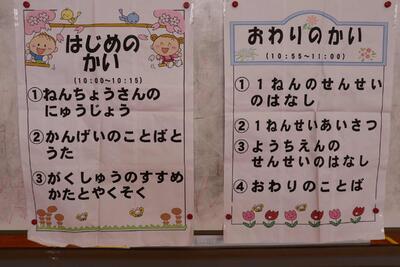 はじめの
かい
(10:00~10:15)
①ねんちょうさんの
にゅうじょう
②かんげいのことばと
うた
③がくしゅうのすすめ
かたとやくそく
おわりのかい
(10:55~11:00)
①1ねんのせんせい
のはなし
②1ねんせいあいさつ
③ようちえんの
せんせいのはなし
④おわりのことば